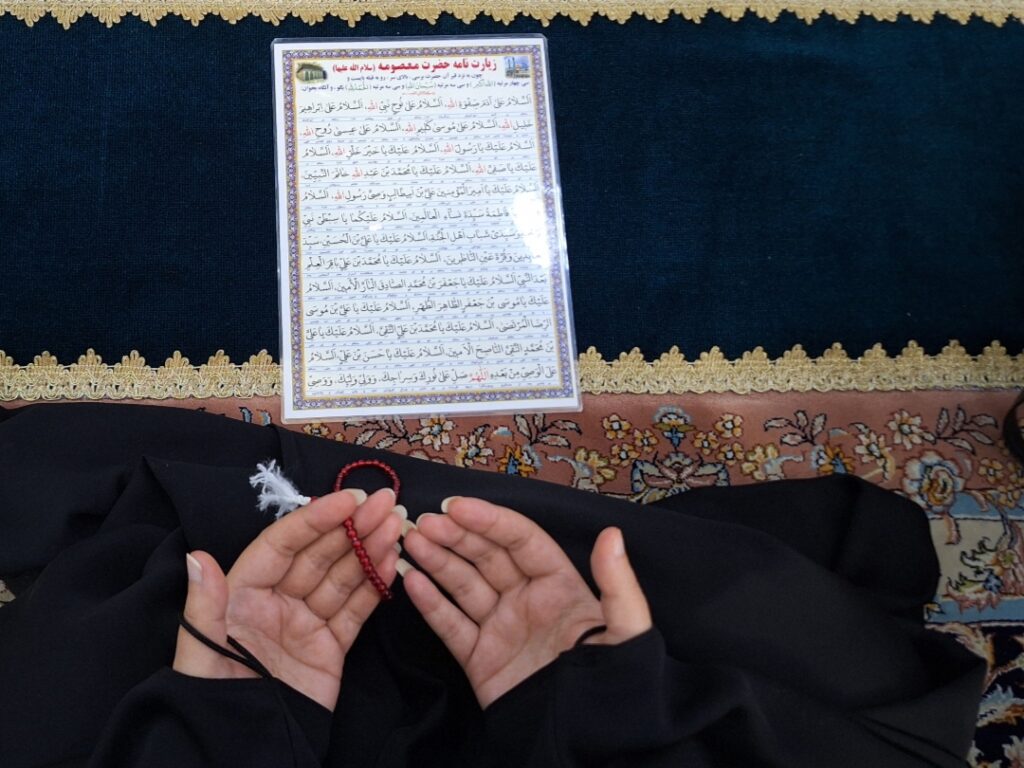 زیارت نامه حضرت معصومه (سلام الله علیها)
چون به نزد قبر آن حضرت برسی، بالای سر، رو به قبله بایست و
سی چهار مرتبه (اللهُ اَکبر) و سی سه مرتبه (سُبحانَ الله) و سی سه مرتبه (اَلحَمدُلله) بگو، و آنگاه بخوان.
اَلسَّلامُ عَلی آدَمَ صِفْوَةِ اللهِ، اَلسَّلامُ عَلی نُوحٍ نَبِیِّ اللهِ، اَلسَّلامُ عَلی اِبْراهیمَ
خَلیلِ اللهِ، اَلسَّلامُ عَلی مُوسی کَلیمِ اللهِ، اَلسَّلامُ عَلی عیسی رُوحِ اللهِ،
اَلسَّلامُ عَلَیْکَ یا رَسُولَ اللهِ، اَلسَّلامُ عَلَیْکَ یا خَیْرَ خَلْقِ اللهِ، اَلسَّلامُ
عَلَیْکَ یا صَفِیَّ اللهِ، اَلسَّلامُ عَلَیْکَ یا مُحَمَّدَ بْنَ عَبْدِ اللهِ خاتَمَ النَّبِیّینَ
اَلسَّلامُ عَلَیْکَ یا اَمیرَ الْمُؤْمِنینَ عَلِیَّ بْنَ اَبیطالِبٍ وَصِیَّ رَسُولِ اللهِ، اَلسَّلامُ
فاطِمَةُ سَیِّدَةَ نِساءِ الْعالَمینَ، اَلسَّلامُ عَلَیْکُما یا سِبْطَیْ نَبِیِّ
سَیِّدَیْ شَبابِ اَهْلِ الْجَنَّةِ، اَلسَّلامُ عَلَیْکَ یا عَلِیَّ بْنَ الْحُسَیْنِ سَیِّدَ
وَقُرَّةَ عَیْنِ النّاظِرینَ، اَلسَّلامُ عَلَیْکَ یا مُحَمَّدَ بْنَ عَلِیٍّ باقِرَ الْعِلْمِ
بَعْدَ النَّبِیِّ، اَلسَّلامُ عَلَیْکَ یا جَعْفَرَ بْنَ مُحَمَّدٍ الصّادِقَ الْبارَّ الْاَمینَ، اَلسَّلامُ
عَلَیْکَ یا مُوسَی بْنَ جَعْفَرٍ الطّاهِرَ الطُّهْرَ، اَلسَّلامُ عَلَیْکَ یا عَلِیَّ بْنَ مُوسَی
الرِّضَا الْمُرْتَضی، اَلسَّلامُ عَلَیْکَ یا مُحَمَّدَ بْنَ عَلِیٍّ التَّقِیَّ، اَلسَّلامُ عَلَیْکَ یا عَلِیَّ
بْنَ مُحَمَّدٍ النَّقِیَّ النّاصِحَ الْاَمینَ، اَلسَّلامُ عَلَیْکَ یا حَسَنَ بْنَ عَلِیٍّ، اَلسَّلامُ
عَلَی الْوَصِیِّ مِنْ بَعْدِهِ اَللّهُمَّ صَلِّ عَلی نُورِکَ وَسِراجِکَ، وَوَلِیِّ وَلِیِّکَ، وَوَصِیِّ